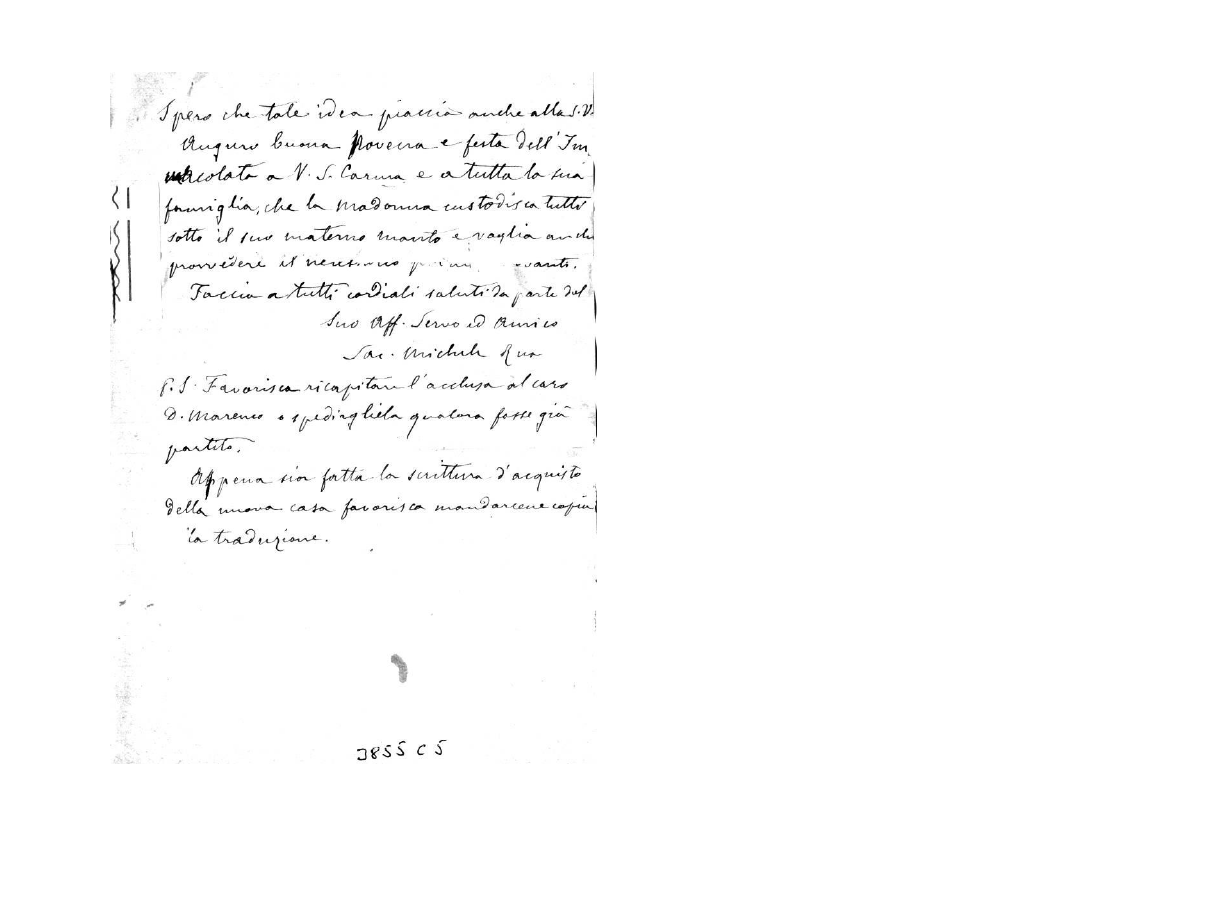 Spero che tale idea piaccia anche alla S.V.
Auguro buona Novena e festa dell'Im
macolata a V. S. Carma e a tutta la sua
famiglia; che la Madonna custodisca tutti
sotto il suo materno manto e voglia anche
provvedere il necessario
Faccia a tutti cordiali saluti da parte del
Suo Aff. Servo ed Amico
Sac. Michele Rua
P.S. Favorisca ricapitare l'acclusa al caro
D. Marenco o spedirgliela qualora fosse già
partito.
Appena sia fatta la scrittura d'acquisto
della nuova casa favorisca mandarcene copia
la traduzione.
3855 C 5